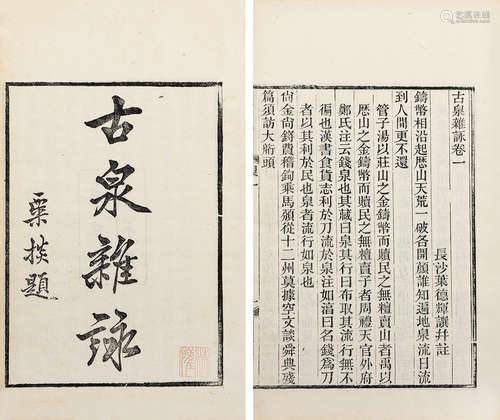 古泉雜詠
題
古泉雜詠卷一
長沙葉德輝譔并註
鑄幣相沿起厯山天荒一破各開顏誰知遍地泉流日流
到人閒更不還
管子湯以莊山之金鑄幣而贖民之無糧賣子者禹以
厯山之金鑄幣而贖民之無糧賣子者周禮天官外府
鄭氏注云錢泉也其藏曰泉其行曰布取其流行無不
徧也漢書食貨志利於刀流於泉注如淳曰名錢爲刀
者以其利於民也泉者流行如泉也
尙金尙費稽鉤乘馬從十二州莫據空文談舜典殘
篇須訪大航頭